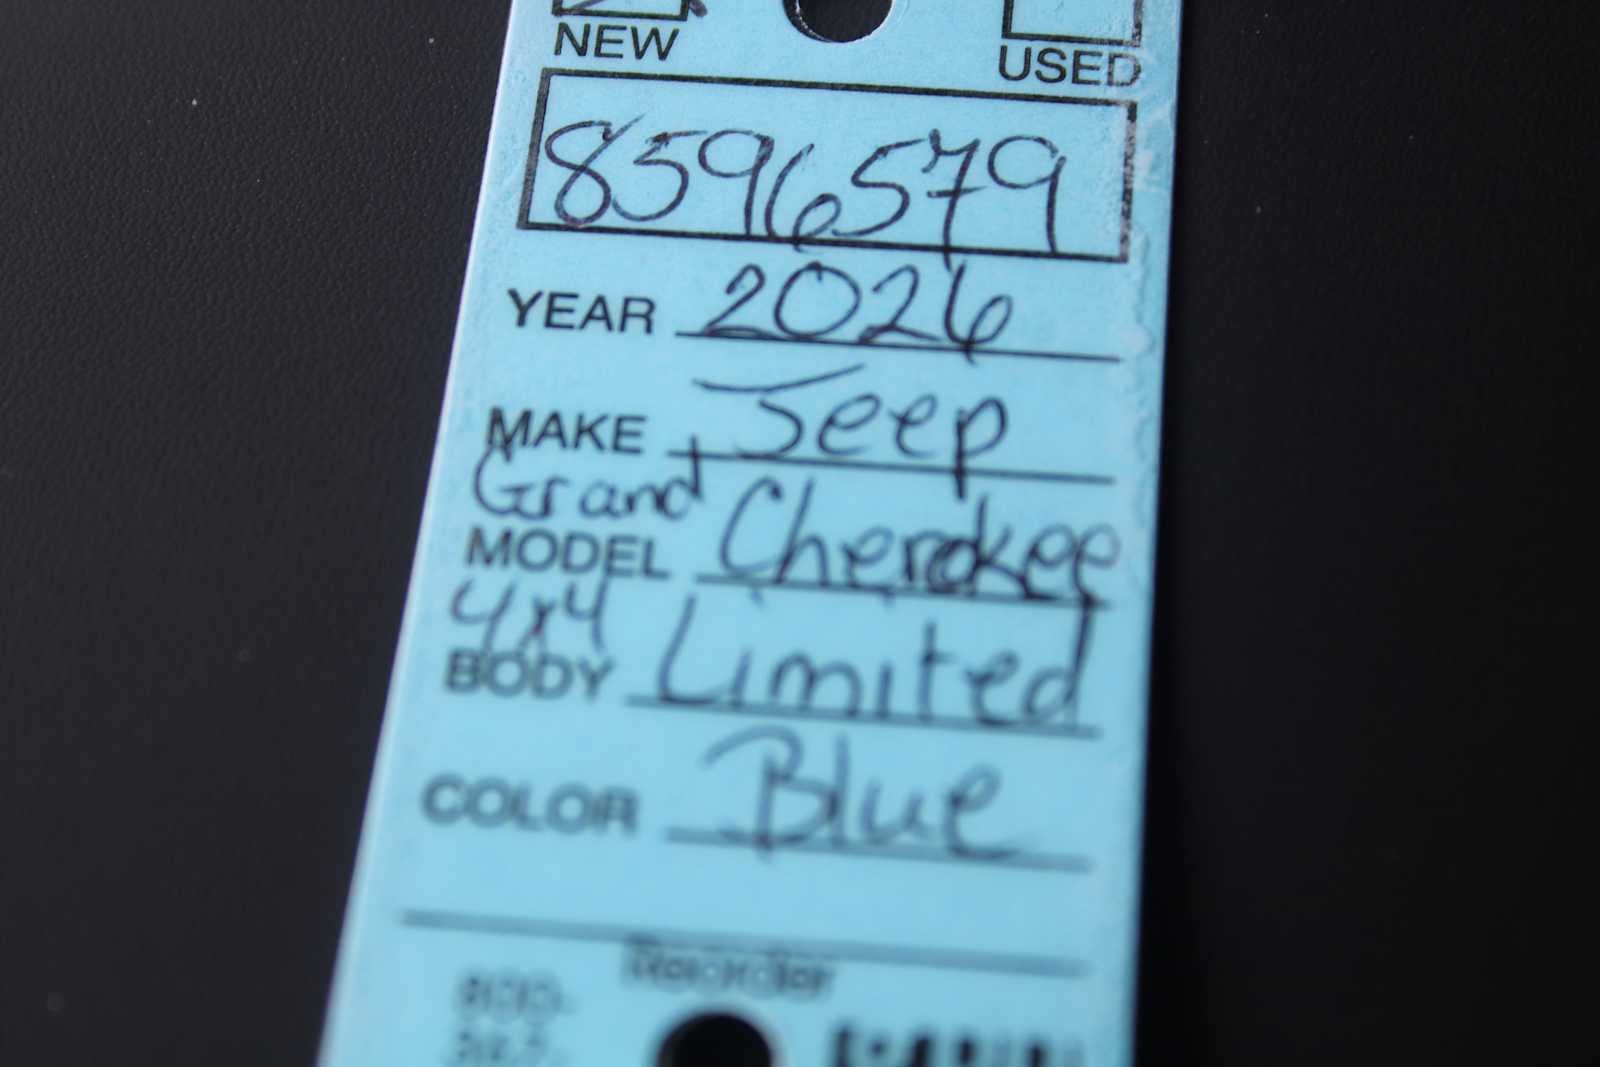 NEW USED
8596579
YEAR 2026
MAKE Jeep
Grand
MODEL Cherokee
4x4
BODY Limited
COLOR Blue
Reorder
800-